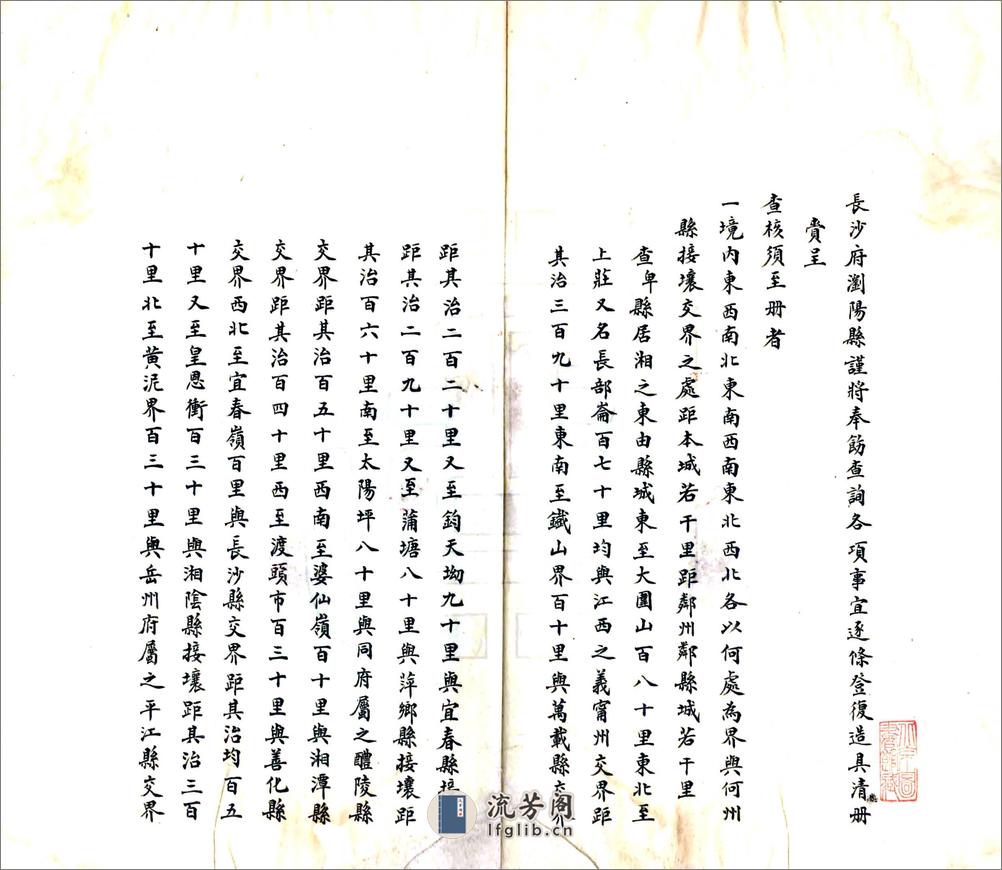 長沙府瀏陽縣謹將奉飭查詢各項事宜逐條登復造具清冊
賷呈
查核須至冊者
一境內東西南北東南西南東北西北各以何處為界與何州
縣接壤交界之處距本城若干里距鄰州鄰縣城若干里
查卑縣居湘之東由縣城東至大圍山百八十里東北至
上莊又名長部崙百七十里均與江西之義甯州交界距
其治三百九十里東南至鐵山界百十里與萬載縣交界
距其治二百二十里又至鈞天坳九十里與宜春縣接
距其治二百九十里又至蒲塘八十里與萍鄉縣接壤距
其治百六十里南至太陽坪八十里與同府屬之醴陵縣
交界距其治百五十里西南至婆仙嶺百十里與湘潭縣
交界距其治百四十里西至渡頭市百三十里與善化縣
交界西北至宜春嶺百里與長沙縣交界距其治均百五
十里又至皇恩衝百三十里與湘陰縣接壤距其治三百
十里北至黃泥界百三十里與岳州府屬之平江縣交界
流芳阁
lfglib.cn